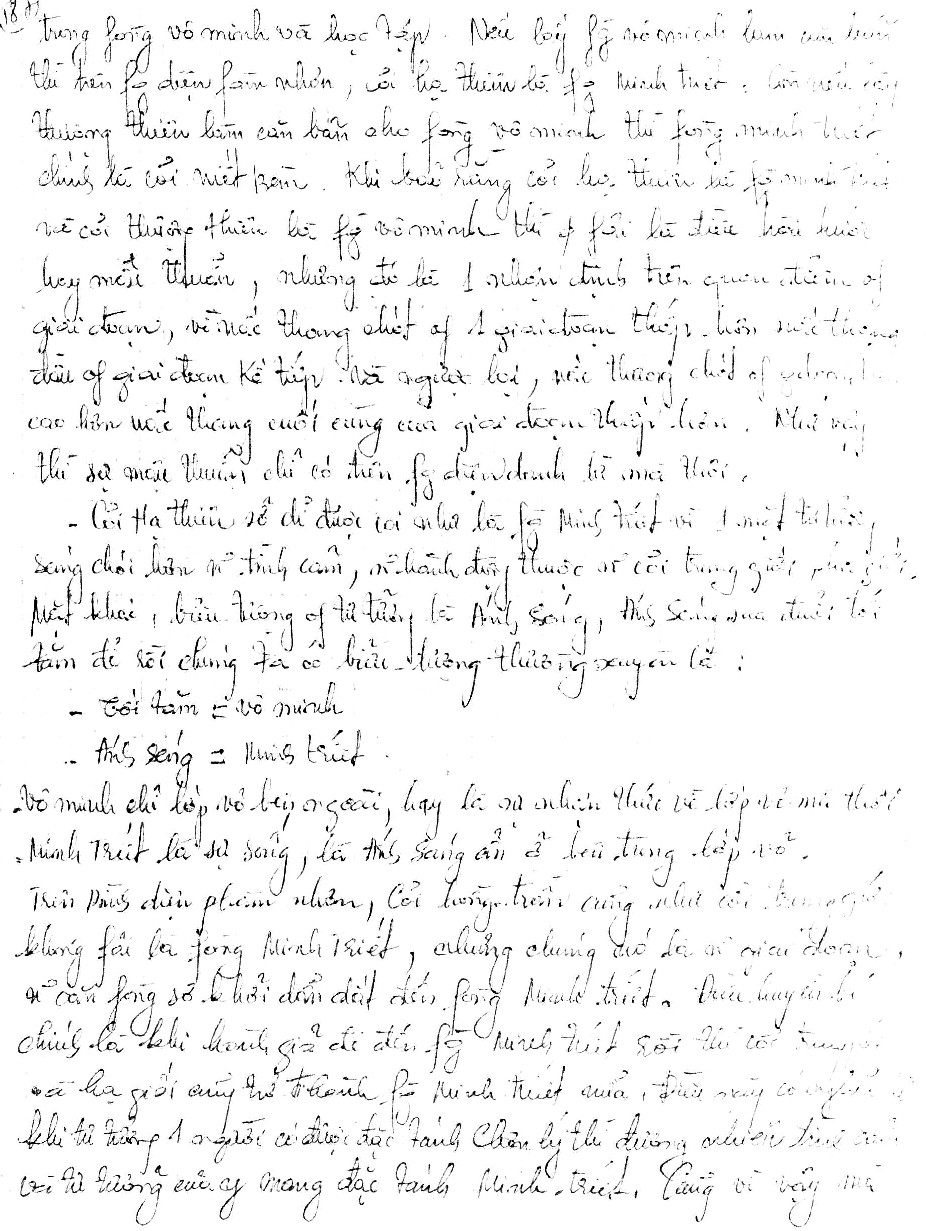 trong fòng vô minh và học tập. Nếu lấy fg vô minh làm căn bản
thì trên fg diện fàm nhơn, cỏi hạ thiên là fg Minh triết. Còn nếu lấy
thượng thiên làm căn bản cho fòng vô minh thì fòng minh triết
chính là cỏi niết bàn. Khi bảo rằng cỏi hạ thiên là fg minh triết
và cỏi thượng thiên là fg vô minh thì fải là điều hài hước
hay mâu thuẩn, nhưng đó là 1 nhận định trên quan điểm of
giai đoạn, vì nấc thang chót of 1 giai đoạn thấp hơn nấc thang
đầu of giai đoạn kế tiếp. Và ngược lại, nấc thang chót of
cao hơn nấc thang cuối cùng của giai đoạn thấp hơn. Như vậy
thì sự mâu thuẩn chỉ có trên fg diện danh từ mà thôi.
- Cỏi Hạ thiên sở dỉ được coi như là fg Minh triết vì 1 mặt tư tưởng
sáng chói hơn tình cảm, hành động thuộc cỏi trung giới,
Mặt khác, biểu tượng of tư tưởng là Ánh sáng, Ánh sáng xua đuổi tối
tăm để rồi chúng ta có biểu-tượng thường xuyên là :
- Tối tăm = vô minh
- Ánh sáng = Minh triết.
- Vô minh chỉ lớp vỏ bên ngoài, hay là sự nhận thức về lớp vỏ mà thôi
- Minh Triết là sự sống, là Ánh sáng ẩn ở bên trong lớp vỏ.
Trên phg diện phàm nhơn, cỏi hồng-trần cũng như cỏi trung giới
không fải là fòng Minh Triết, nhưng chúng nó là giai đoạn,
căn fòng sơ khởi dẩn dắt đến fòng Minh triết. Điều huyền bí
chính là khi hành giả đi đến fg Minh triết rồi thì cỏi trung
và hạ giới cũng trở thành fg Minh triết nửa. Điều nầy có nghỉa là
khi tư tưởng 1 người có được đặc tánh Chân lý thì đương nhiên tình cảm
và tư tưởng của y mang đặc tánh Minh-triết. Cũng vì vậy mà